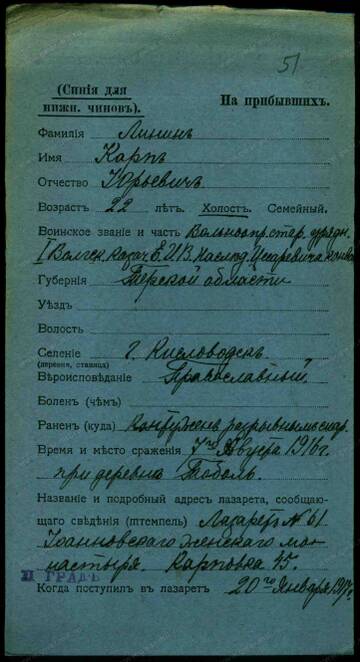 51
(Синія для
нижн. чиновъ).
На прибывшихъ.
Фамилія Линин
Имя Карпъ
Отчество Юрьевичъ
Возрастъ 22 лѣтъ. Холостъ. Семейный.
Воинское званіе и часть Вольноопр. стар. урядн.
I Волгск. казач. Е. И. В. Наслѣд. Цесаревича
Губернія Терской области
Уѣздъ
Волость
Селеніе г. Кисловодскъ
(деревня, станица)
Вѣроисповѣданіе Православный.
Боленъ (чѣмъ)
Раненъ (куда) Контуженъ разрывнымъ снар.
Время и мѣсто сраженія 7го Августа 1916 г.
при деревнѣ Тоболь.
Названіе и подробный адресъ лазарета, сообщаю-
щаго свѣдѣнія (штемпель) Лазаретъ № 61
Іоанновскаго женскаго мо-
настыря. Карповка 45.
П ГРАДЪ
Когда поступилъ въ лазаретъ 20го Января 1917 г.